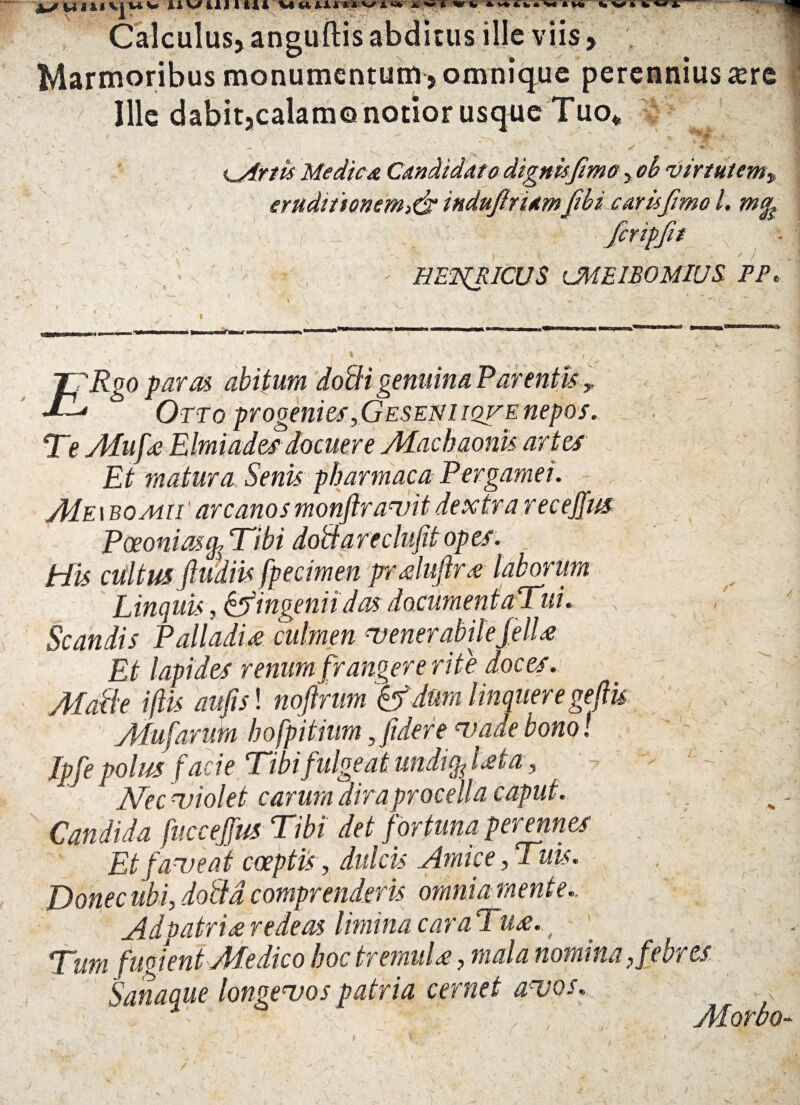 Calculus, anguſtis abditus ille viis,
Marmoribus monumentum, omnique perennius ære
Ille dabit, calamo notior usque Tuo.
Artis Medicæ Candidato digniſſimo, ob virtutem,
eruditionem, & induſtriam ſibi cariſſimo l. mq;
ſcripſit
HENRICUS MEIBOMIUS PP.
ERgo paras abitum docti genuina Parentis,
OTTO progenies, GESENIIQVE nepos.
Te Muſæ Elmiades docuere Machaonis artes
Et matura Senis pharmaca Pergamei.
MEIBOMII arcanos monſtravit dextra receſſus
Pœoniasq; Tibi docta recluſit opes.
His cultus ſtudiis ſpecimen præluſtræ laborum
Linquis, & ingenii das documenta Tui.
Scandis Palladiæ culmen venerabile ſellæ
Et lapides renum frangere rite doces.
Macte iſtis auſis! noſtrum & dum linquere geſtis
Muſarum hoſpitium, ſidere vade bono!
Ipſe polus facie Tibi fulgeat undiq; læta,
Nec violet carum dira procella caput.
Candida ſucceſſus Tibi det fortuna perennes
Et faveat cœptis, dulcis Amice, Tuis.
Donec ubi, docta comprenderis omnia mente.
Ad patriæ redeas limina cara Tuæ.
Tum fugient Medico hoc tremulæ, mala nomina, febres
Sanaque longevos patria cernet avos.
Morbo-